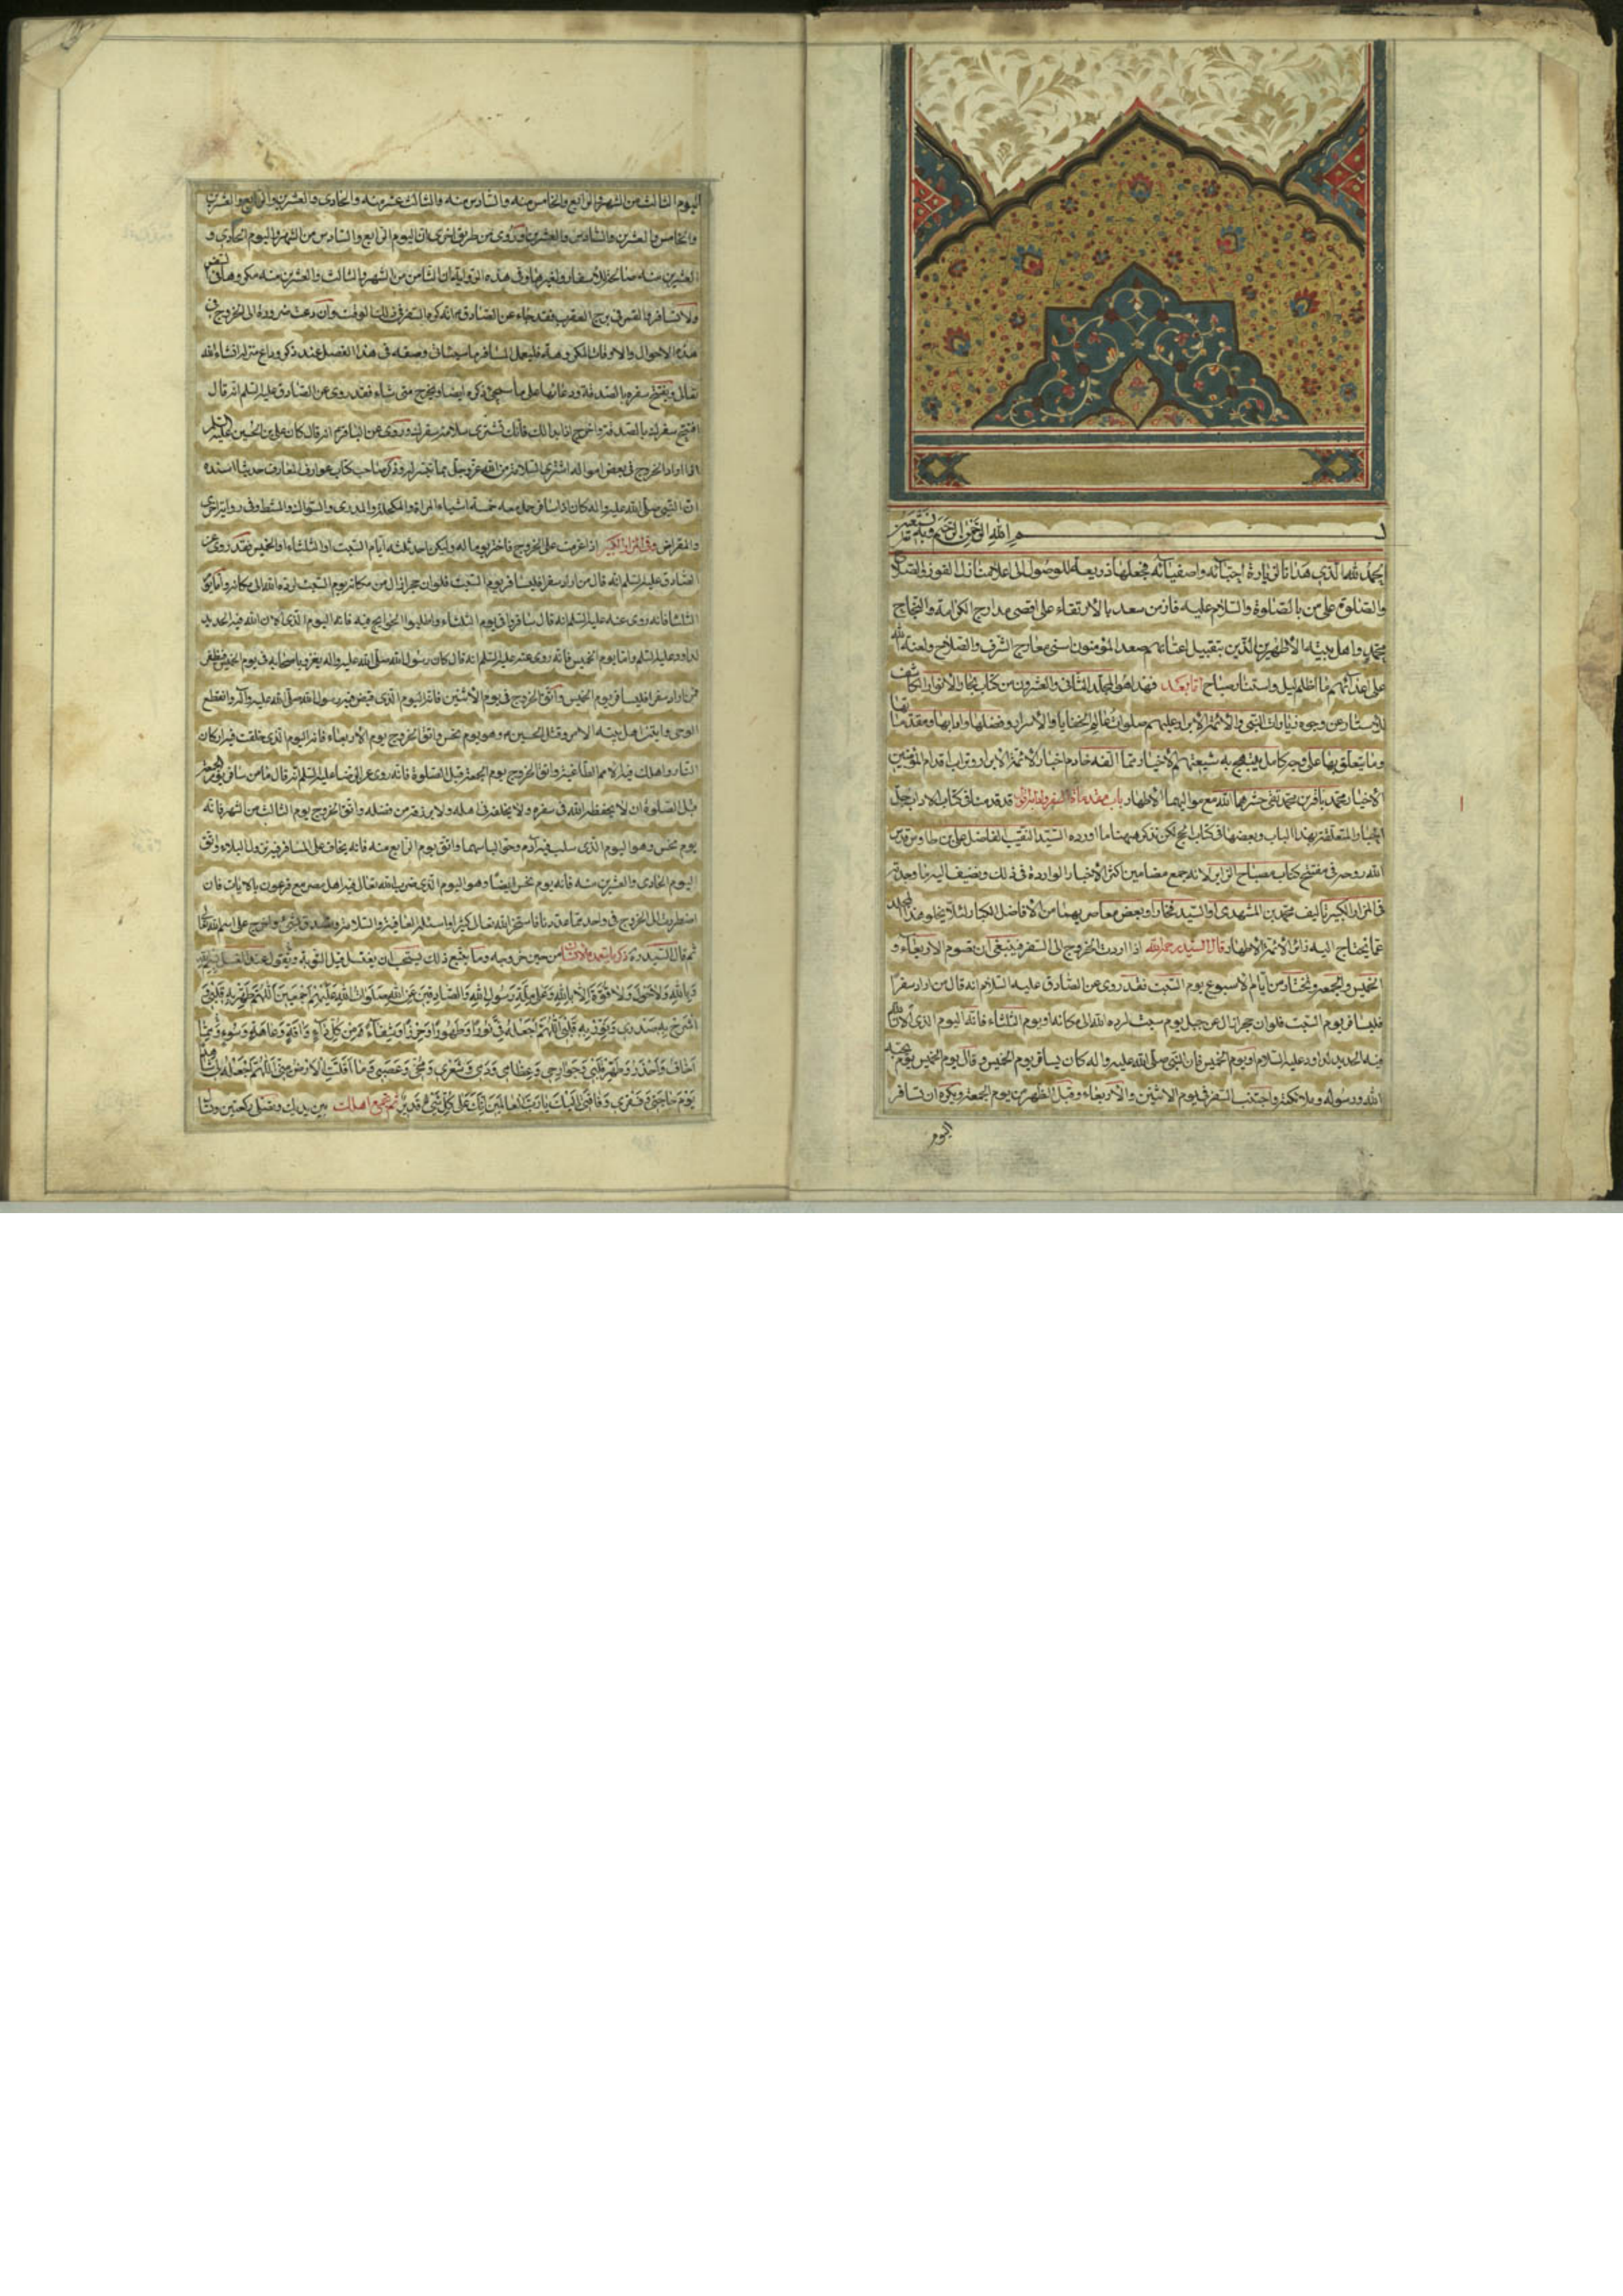 بسم الله الرحمن الرحيم وبه نستعين
الحمد لله الذي هدانا لزيارة احبائه واصفيائه فجعلها ذريعة للوصول الى اعلا منازل الفوز والصلاح
والصلوة على من بالصلوة والسلام عليه فاز من سعد بالارتقاء على اقصى مدارج الكرامة والنجاح
محمد واهل بيته الأطهرين الذين بتقبيل اعتابهم صعد المؤمنون اسنى معارج الشرف والفلاح ولعنة الله
على اعدائهم ما اظلم ليل واستنار صباح اما بعد فهذا هو المجلد الثاني والعشرون من كتاب بحار الانوار الكاشف
للاستار عن وجوه زيارات النبي والأئمة الأبرار عليهم صلوات عالم الخفايا والأسرار وفضلها وادابها ومقدماتها
وما يتعلق بها على وجه كامل يبتهج به شيعتهم الأخيار مما الفه خادم اخبار الأئمة الأبرار وتراب اقدام المؤمنين
الاخيار محمد باقر بن محمد تقي حشرهما الله مع مواليهما الأطهار باب مقدمات السفر وادابه قد قدمنا في كتاب الاداب جل
الاخبار المتعلقة بهذا الباب وبعضها في كتاب الحج لكن نذكر ههنا ما اورده السيد النقيب الفاضل علي بن طاوس قدس
الله روحه في مفتتح كتاب مصباح الزاير لانه جمع مضامين اكثر الأخبار الواردة في ذلك ونضيف اليه ما وجدته
في المزار الكبير تأليف محمد بن المشهدي او السيد فخار او بعض معاصريهما من الأفاضل الكبار لئلا يخلو هذا المجلد
عما يحتاج اليه زائر الأئمة الأطهار قال السيد رحمه الله اذا اردت الخروج الى السفر فينبغي ان تصوم الاربعاء و
الخميس والجمعة وتختار من ايام الأسبوع يوم السبت فقد روي عن الصادق عليه السلام انه قال من اراد سفرا
فليسافر يوم السبت فلو ان حجرا زال عن جبل يوم سبت لرده الله الى مكانه او يوم الثلثاء فانه اليوم الذي ألان الله
فيه الحديد لداود عليه السلام او يوم الخميس فان النبي صلى الله عليه واله كان يسافر يوم الخميس وقال يوم الخميس يوم يحبه
الله ورسوله وملائكته واجتنب السفر في يوم الاثنين والأربعاء وقبل الظهر من يوم الجمعة ويكره ان تسافر
اليوم
اليوم الثالث من الشهر والرابع والخامس منه والسادس منه والثالث عشر منه والحادي والعشرين والرابع والعشرين
والخامس والعشرين والسادس والعشرين وروي من طريق اخرى ان اليوم الرابع والسادس من الشهر واليوم الحادي و
العشرين منه صالحة للأسفار ولغيرها وفي هذه الرواية ان الثامن من الشهر والثالث والعشرين منه مكروهان للسفر
ولا تسافر والقمر في برج العقرب فقد جاء عن الصادق ع انه كره السفر في ذلك الوقت وان دعت ضرورة الى الخروج في
هذه الاحوال والاوقات المكروهة فليعمل المسافر ما سيأتي وصفه في هذا الفصل عند ذكر وداع منزله انشاء الله
تعالى ويفتتح سفره بالصدقة ودعائها على ما سيجيئ ذكره ايضا ويخرج متى شاء فقد روي عن الصادق عليه السلام انه قال
افتتح سفرك بالصدقة واخرج اذا بدا لك فانك تشتري سلامة سفرك وروي عن الباقر ع انه قال كان علي بن الحسين عليه السلم
اذا اراد الخروج في بعض امواله اشترى السلامة من الله عز وجل بما تيسر له وذكر صاحب كتاب عوارف المعارف حديثا اسنده
ان النبي صلى الله عليه واله كان اذا سافر حمل معه خمسة اشياء المرآة والمكحلة والمدرى والسواك والمشط وفي رواية اخرى
والمقراض وفي المزار الكبير اذا عزمت على الخروج فاختر يوما له وليكن احد ثلثة ايام السبت او الثلثاء او الخميس فقد روي عن
الصادق عليه السلم انه قال من اراد سفرا فليسافر يوم السبت فلو ان حجرا زال من مكانه يوم السبت لرده الله الى مكانه واما يوم
الثلثا فانه روي عنه عليه السلم انه قال سافروا في يوم الثلثاء واطلبوا الحوايج فيه فانه اليوم الذي ألان الله فيه الحديد
لداود عليه السلم واما يوم الخميس فانه روي عنه عليه السلم انه قال كان رسول الله صلى الله عليه واله يغزو باصحابه في يوم الخميس فيظفر
فمن اراد سفرا فليسافر يوم الخميس واتق الخروج في يوم الاثنين فانه اليوم الذي قبض فيه رسول الله صلى الله عليه وآله وانقطع
الوحي وابتز اهل بيته الامر وقتل الحسين ع وهو يوم نحس واتق الخروج يوم الأربعاء فانه اليوم الذي خلقت فيه اركان
النار واهلك فيه الامم الطاغية واتق الخروج يوم الجمعة قبل الصلوة فانه روي عن الرضا عليه السلم انه قال ما من سافر يوم الجمعة
قبل الصلوة ان لا يحفظه الله في سفره ولا يخلفه في اهله ولا يرزقه من فضله واتق الخروج يوم الثالث من الشهر فانه
يوم نحس وهو اليوم الذي سلب فيه آدم وحوا لباسهما واتق يوم الرابع منه فانه يخاف على المسافر فيه نزول البلاء واتق
اليوم الحادي والعشرين منه فانه يوم نحس ايضا وهو اليوم الذي ضرب الله تعالى فيه اهل مصر مع فرعون بالايات فان
اضطررت الى الخروج في واحد مما عددنا فاستخر الله تعالى كثيرا واسئله العافية والسلامة وتصدق بشيئ واخرج على اسم الله تعالى
ثم قال السيد ره ذكر ما يتعمده الانسان من حين خروجه وما يتبع ذلك يستحب ان يغتسل قبل التوجه ويقول عند الغسل بسم الله
وبالله ولا حول ولا قوة الا بالله وعلى ملة رسول الله والصادقين عن الله صلوات الله عليهم اجمعين اللهم طهر به قلبي و
اشرح به صدري ونور به قلبي اللهم اجعله لي نورا وطهورا وحرزا وشفاء من كل داء وآفة وعاهة وسوء ومما
اخاف واحذر وطهر قلبي وجوارحي وعظامي ودمي وشعري ومخي وعصبي وما اقلت الارض مني اللهم اجعله لي شاهدا
يوم حاجتي وفقري وفاقتي اليك يا رب العالمين انك على كل شيئ قدير ثم تجمع اهلك بين يديك وتصلي ركعتين وتسأل